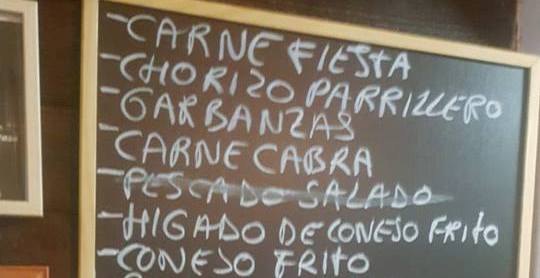 -CARNE FIESTA
-CHORIZO PARRILLERO
-GARBANZAS
-CARNE CABRA
-PESCADO SALADO
-HIGADO DE CONEJO FRITO
-CONEJO FRITO